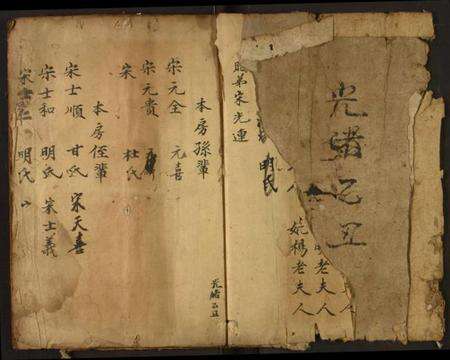 光緒己丑
人
老夫人
妣楊老夫人
人
明氏
胞弟宋光連
本房孫輩
宋元全 元喜
宋元貴
宋 杜氏
本房侄輩
宋士順 甘氏 宋天喜
宋士和 明氏 宋士義
宋士仁 明氏
光緒己丑